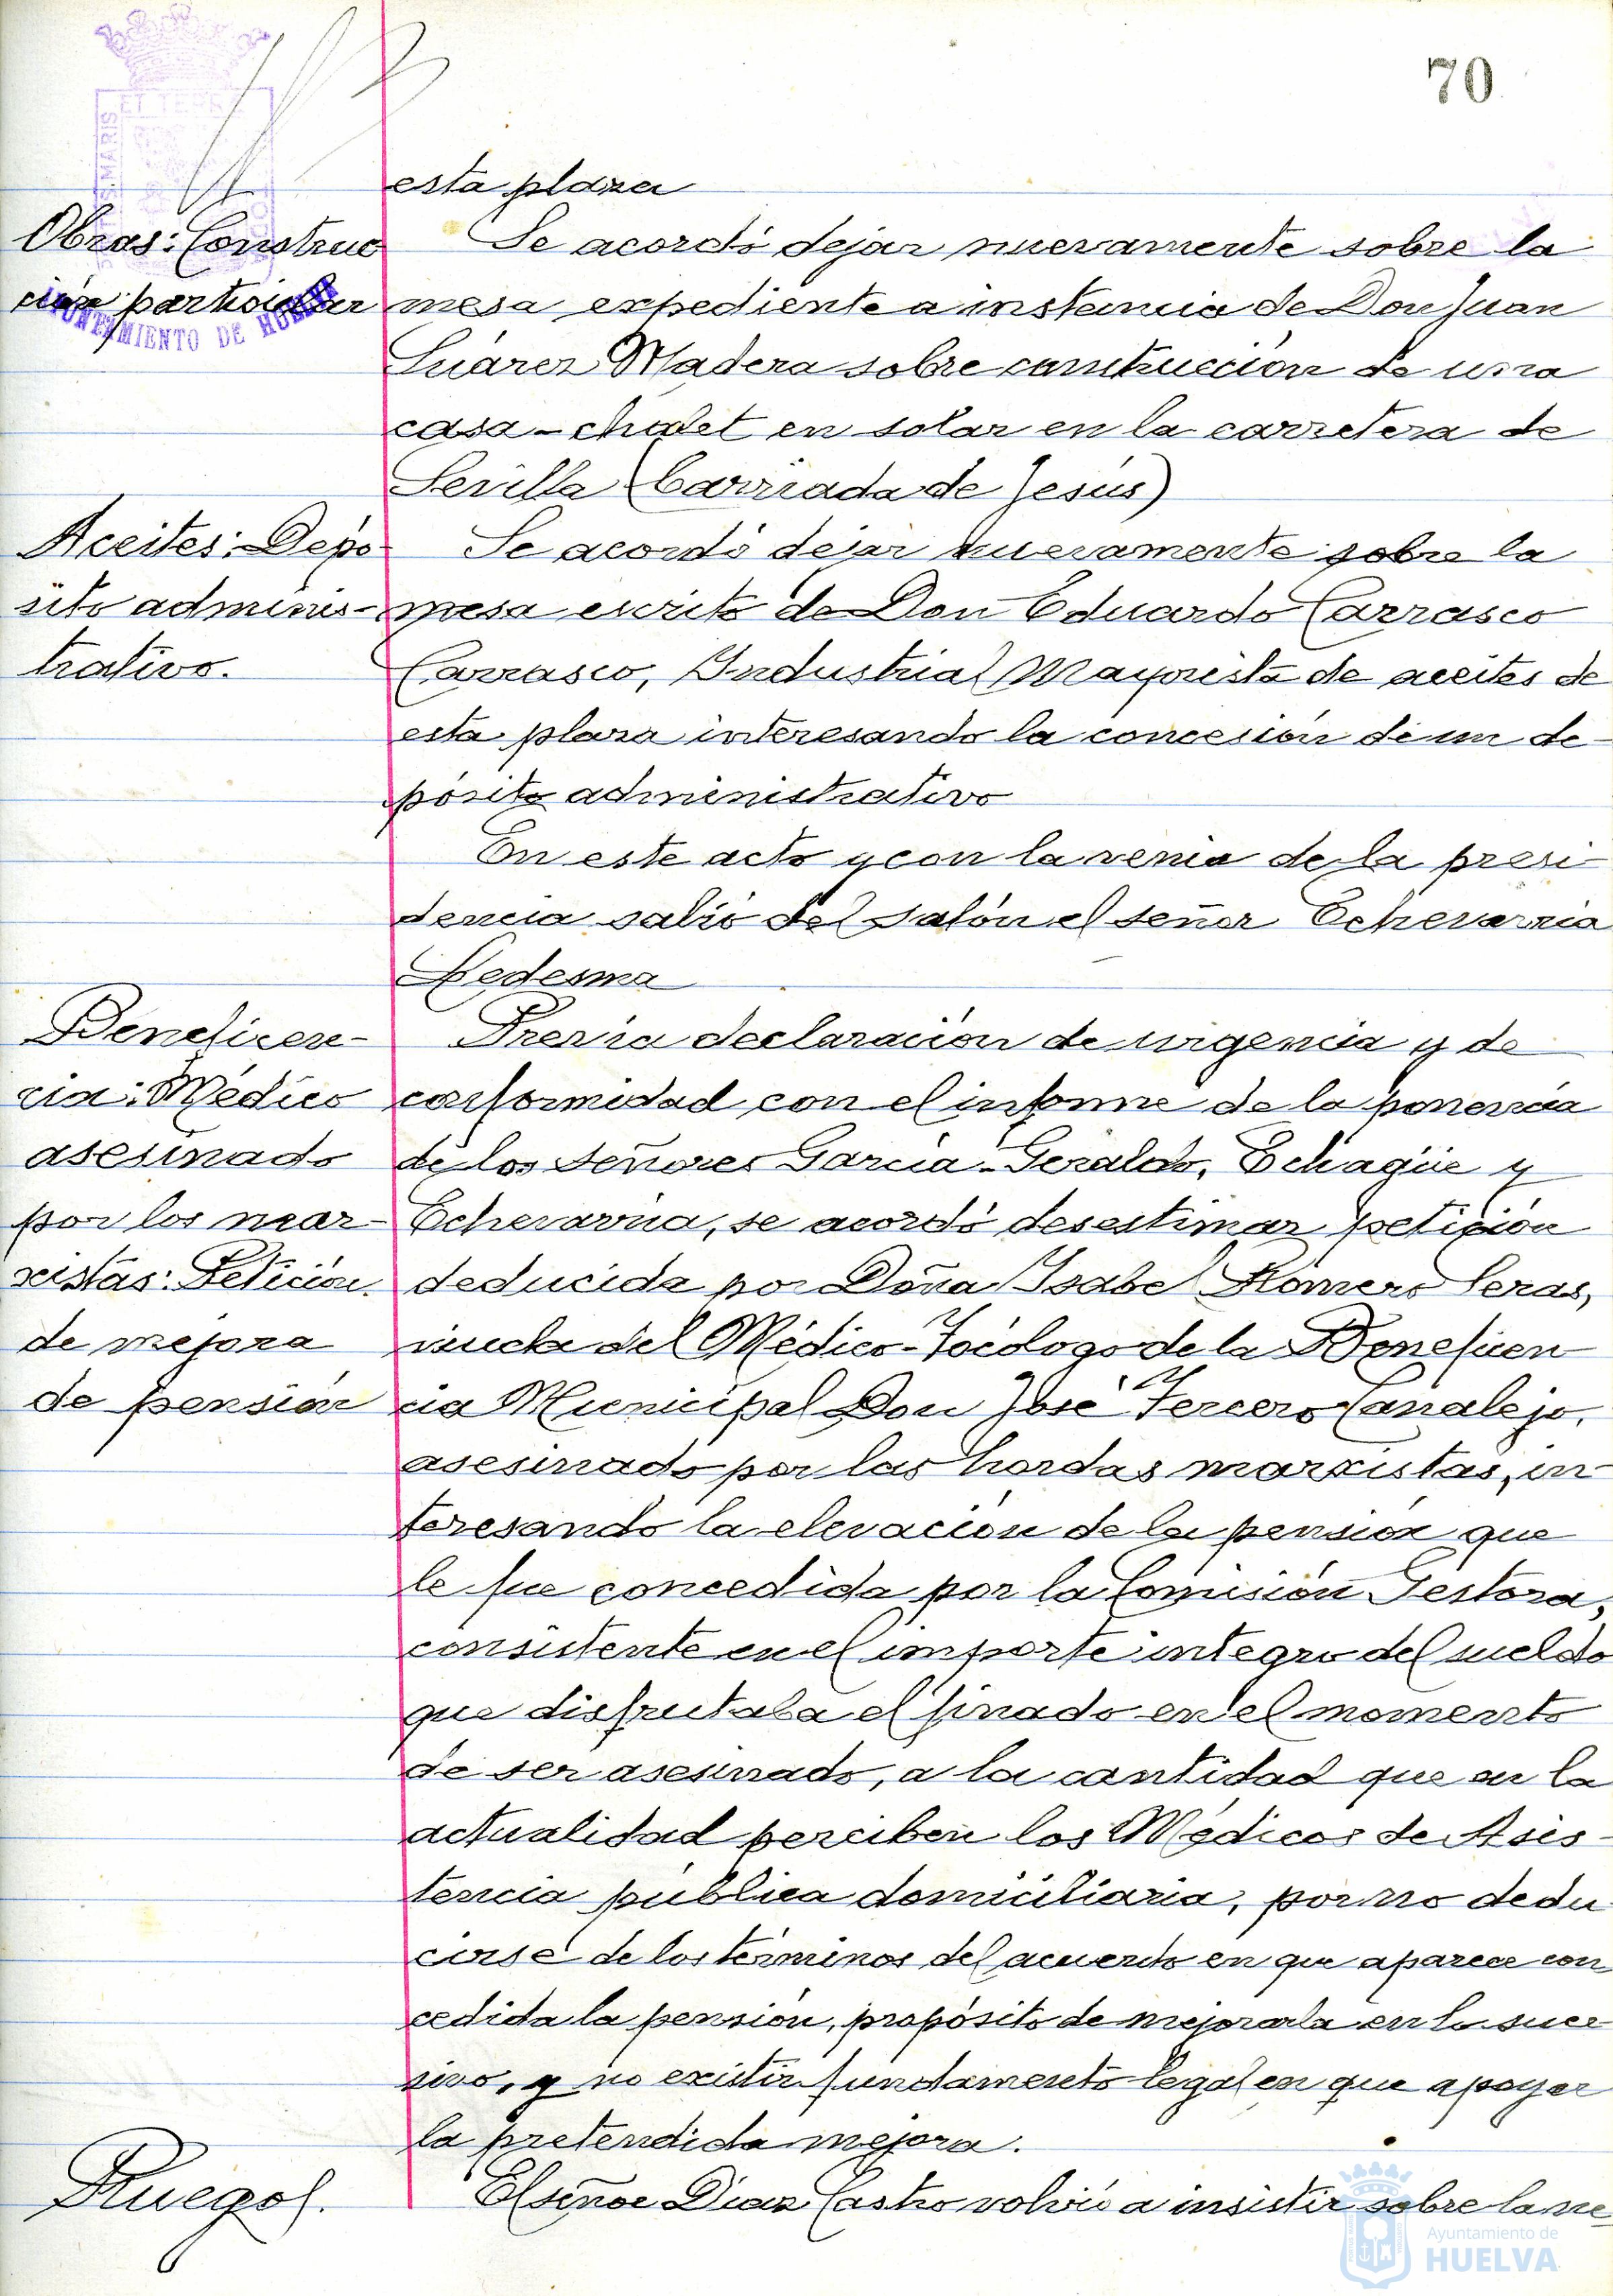 70
esta plaza
Obras: Construc
ción particular
AYUNTAMIENTO DE HUELVA
Se acordó dejar nuevamente sobre la
mesa expediente a instancia de Don Juan
Suárez Madera sobre construcción de una
casa-chalet en solar en la carretera de
Sevilla (barriada de Jesús)
Aceites: Depó
sito adminis-
trativo.
Se acordó dejar nuevamente sobre la
mesa escrito de Don Eduardo Carrasco
Carrasco, Industrial Mayorista de aceites de
esta plaza interesando la concesión de un de-
pósito administrativo
En este acto y con la venia de la presi-
dencia salió del salón el señor Echevarria
Ledesma
Beneficen-
cia: Médico
asesinado
por los mar-
xistas: Petición
de mejora
de pensión
Previa declaración de urgencia y de
conformidad con el informe de la ponencia
de los señores Garcia-Geraldo, Echagüe y
Echevarria, se acordó desestimar petición
deducida por Doña Isabel Romero Ceras,
viuda del Médico-Tocólogo de la Beneficen
cia Municipal Don José Tercero Canalejo,
asesinado por las hordas marxistas, in-
teresando la elevación de la pensión que
le fue concedida por la Comisión Gestora,
consistente en el importe integro del sueldo
que disfrutaba el finado en el momento
de ser asesinado, a la cantidad que en la
actualidad perciben los Médicos de Asis-
tencia pública domiciliaria, por no dedu
cirse de los términos del acuerdo en que aparece con
cedida la pensión, propósito de mejorarla en lo suce
sivo, y no existir fundamento legal en que apoyar
la pretendida mejora.
Ruegos.
El señor Diaz Castro volvió a insistir sobre la ne
Ayuntamiento de
HUELVA